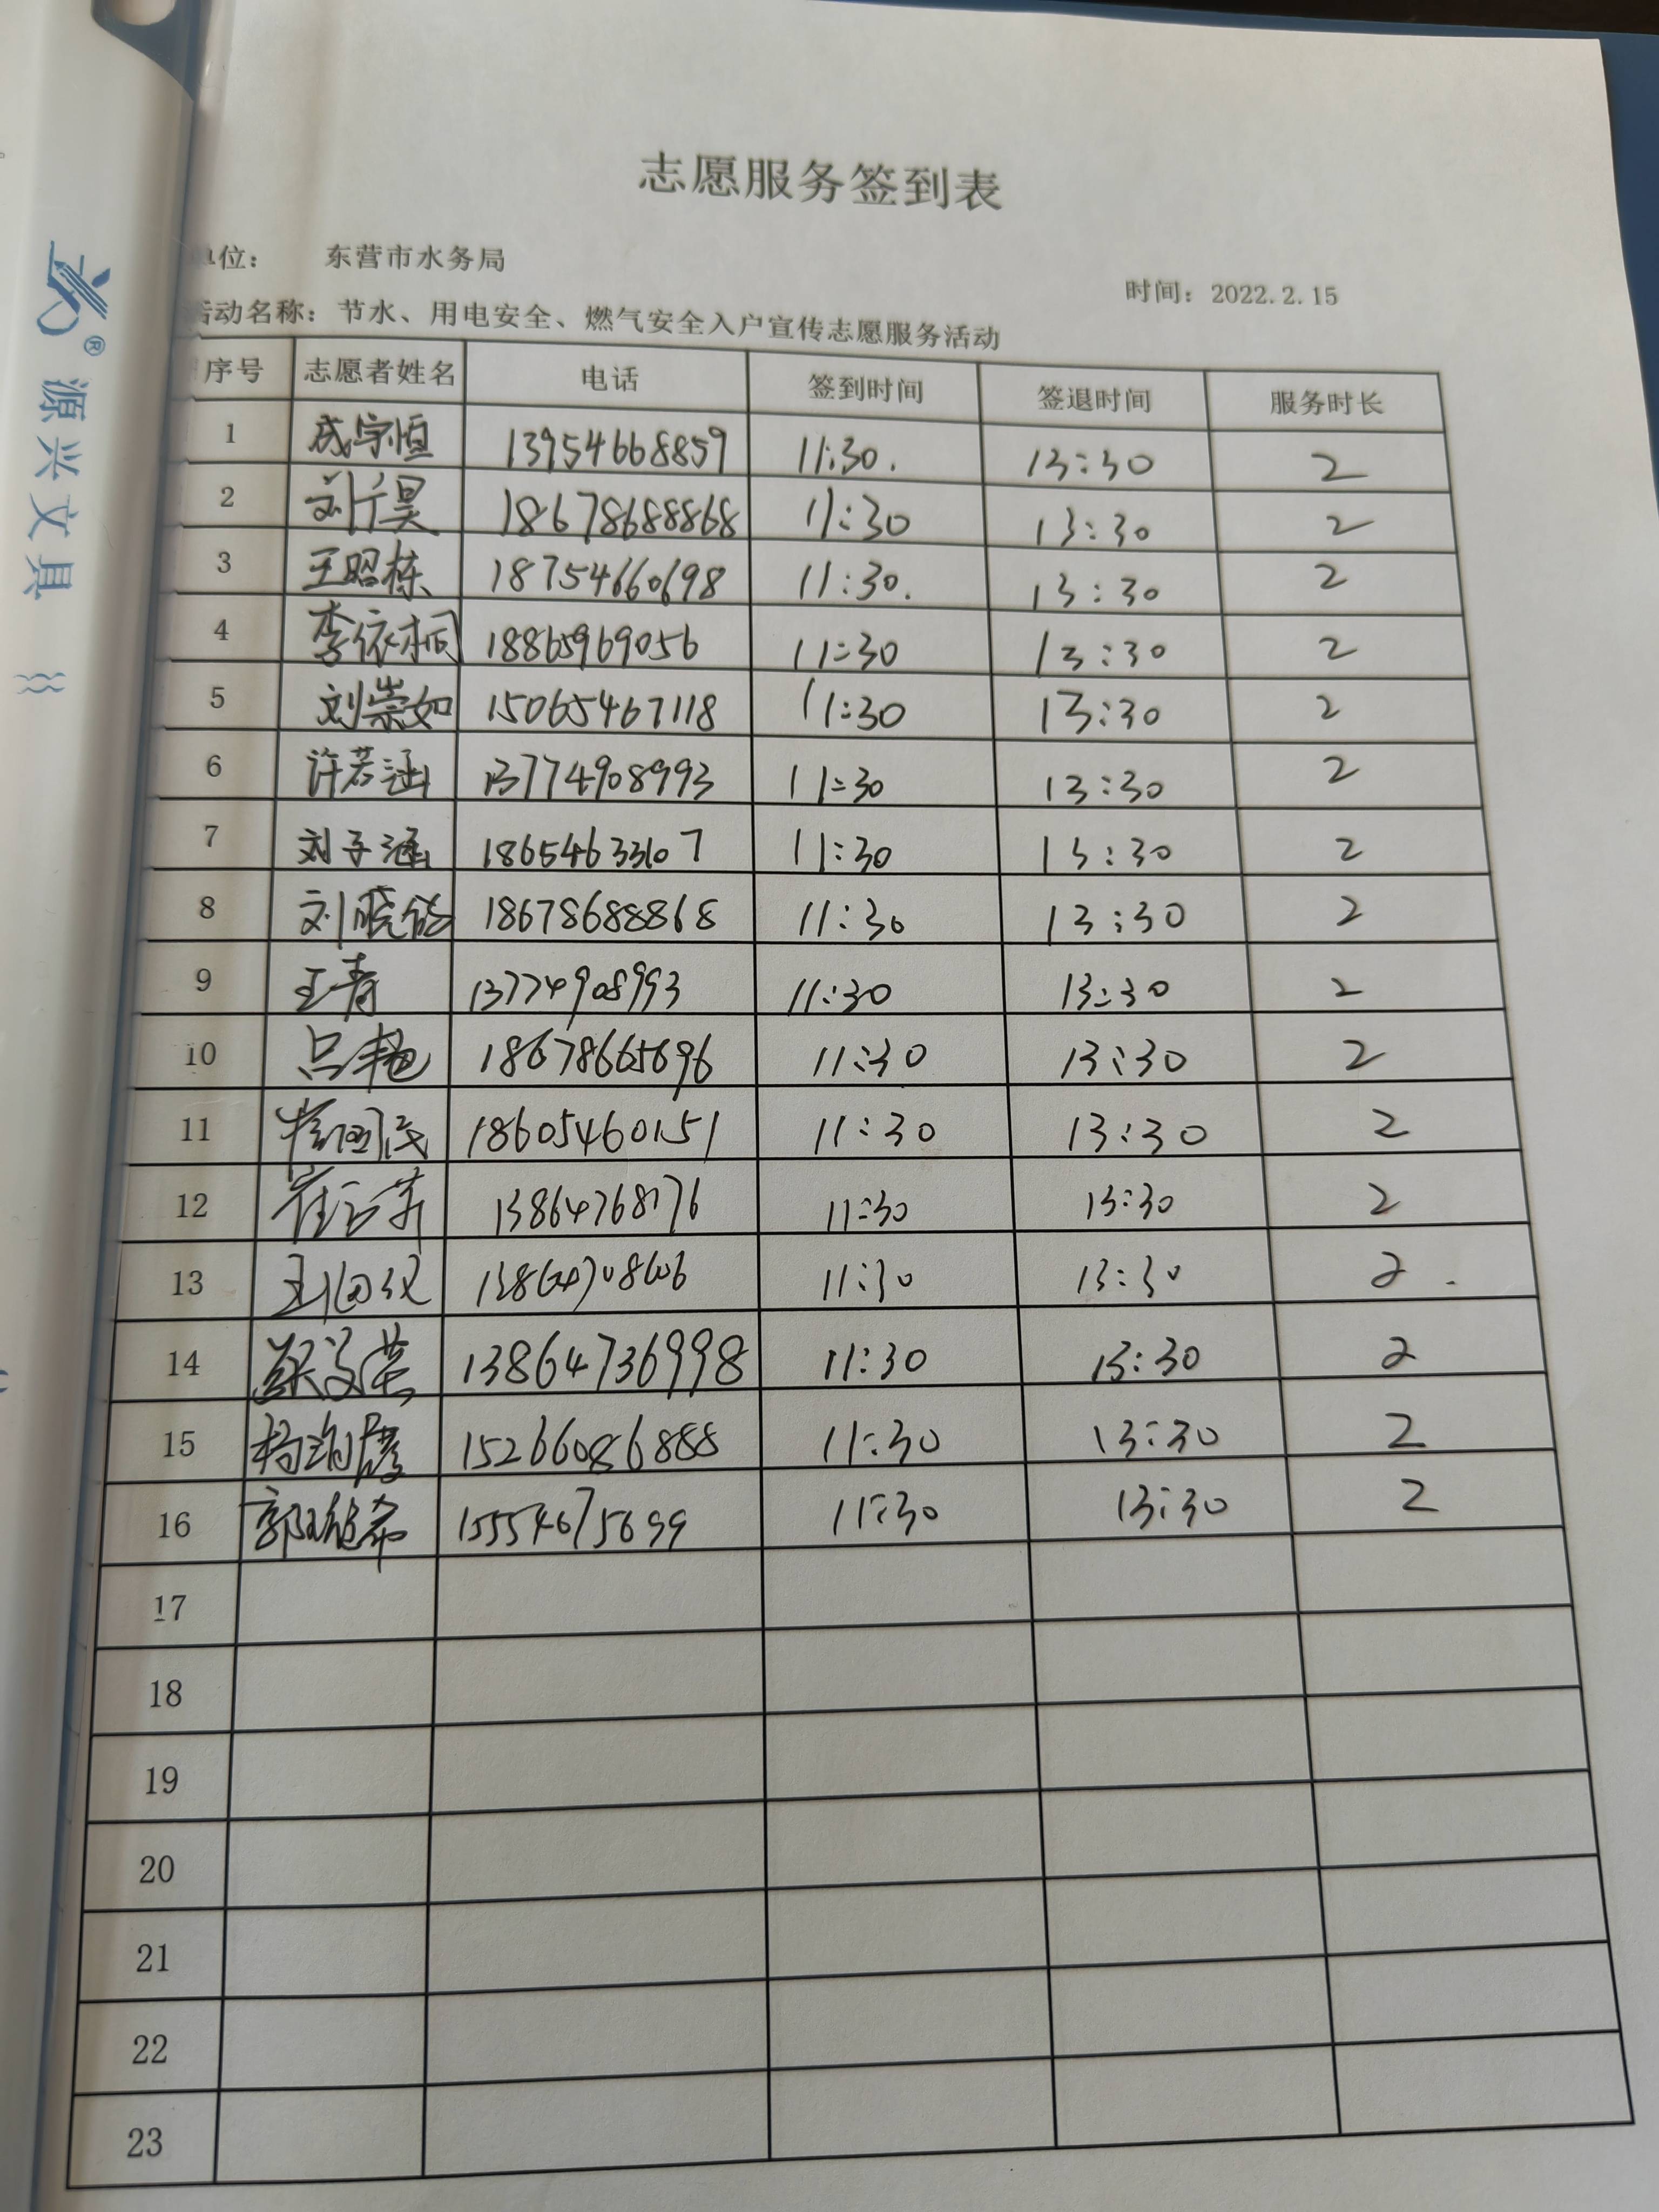 志愿服务签到表
单位： 东营市水务局
时间：2022.2.15
活动名称：节水、用电安全、燃气安全入户宣传志愿服务活动
序号 志愿者姓名 电话 签到时间 签退时间 服务时长
1 成宇恒 13954668859 11:30. 13:30 2
2 刘广昊 18678688868 11:30 13:30 2
3 王昭栋 18754660698 11:30. 13:30 2
4 李依桐 18865969056 11:30 13:30 2
5 刘崇如 15065467118 11:30 13:30 2
6 许若涵 13774908993 11:30 13:30 2
7 刘子涵 18654633107 11:30 13:30 2
8 刘晓 18678688868 11:30 13:30 2
9 王青 13774908993 11:30 13:30 2
10 吕艳 18678665696 11:30 13:30 2
11 18605460151 11:30 13:30 2
12 崔云萍 13864768176 11:30 13:30 2
13 11:30 13:30 2
14 13864736998 11:30 13:30 2
15 杨 15266086888 11:30 13:30 2
16 郭 15554675699 11:30 13:30 2
17
18
19
20
21
22
23
® 源兴文具